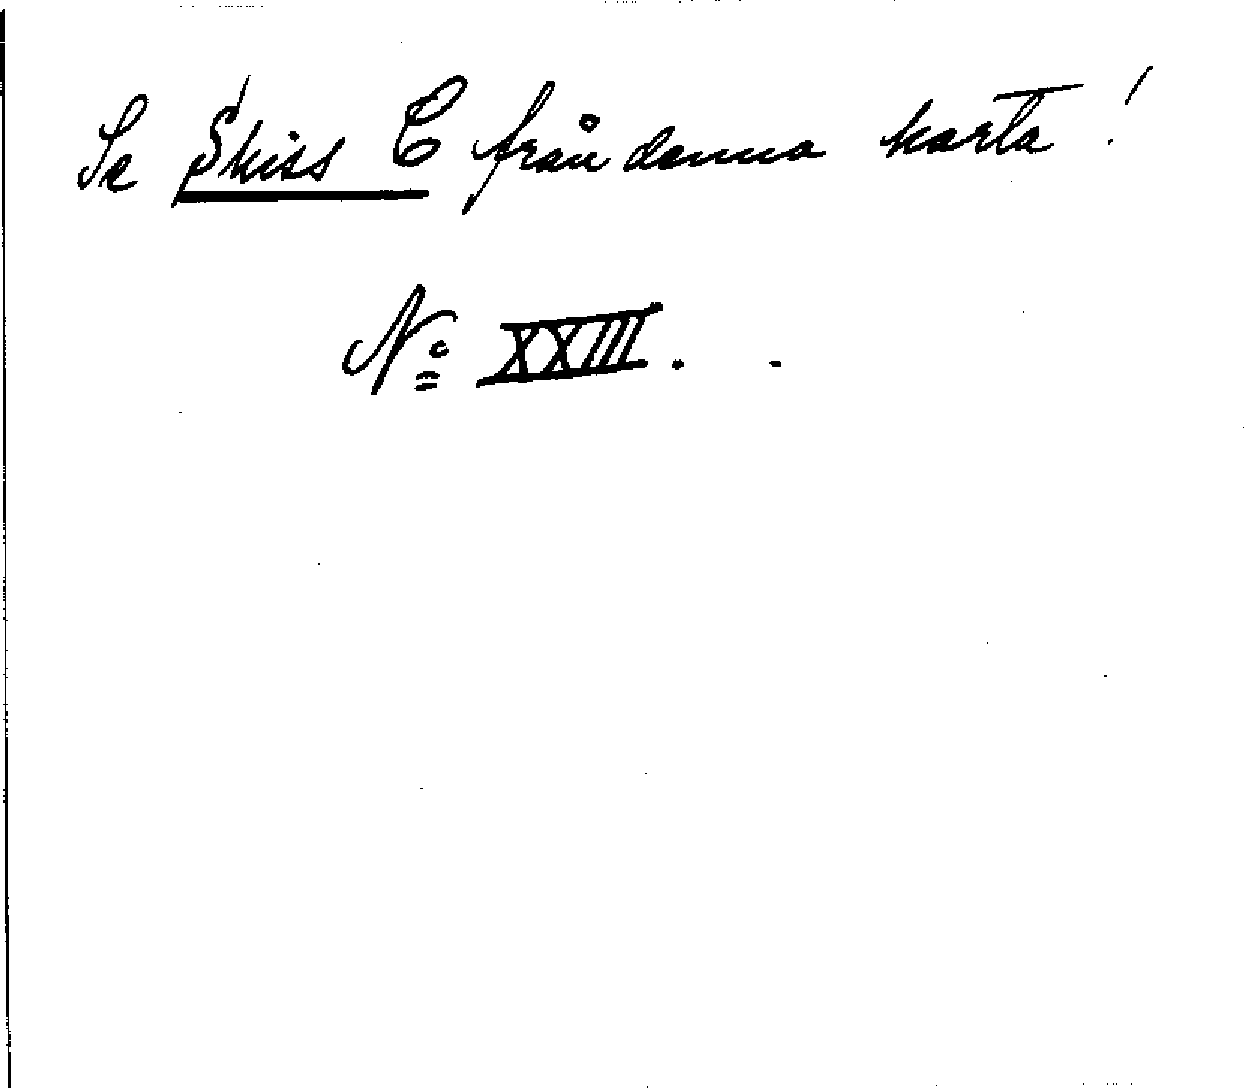 Se Skiss C från denna karta!
No XXIII.